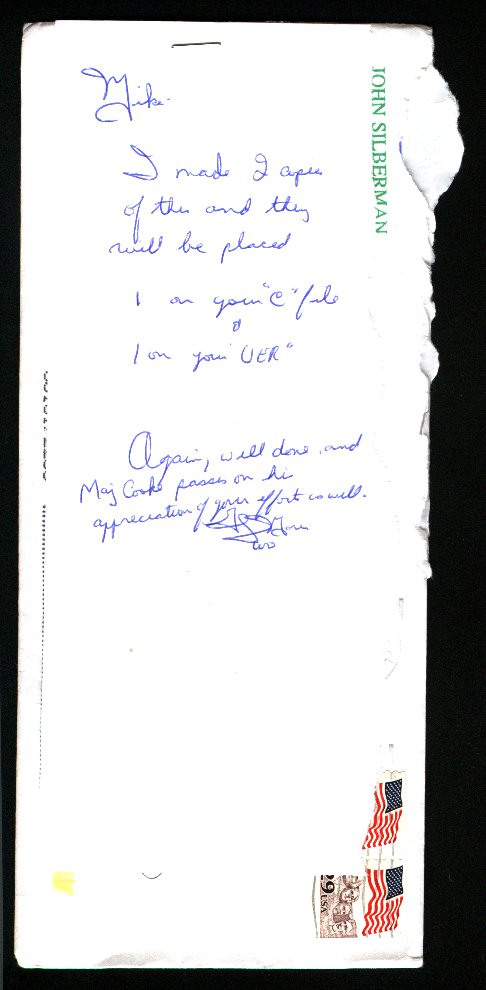 Mike.
I made 2 copies
of this and they
will be placed
1 on your "C" file
&
1 on your "UER"
Again, well done, and
Maj Cooke passes on his
appreciation of your efforts as well.
JOHN SILBERMAN
29
USA